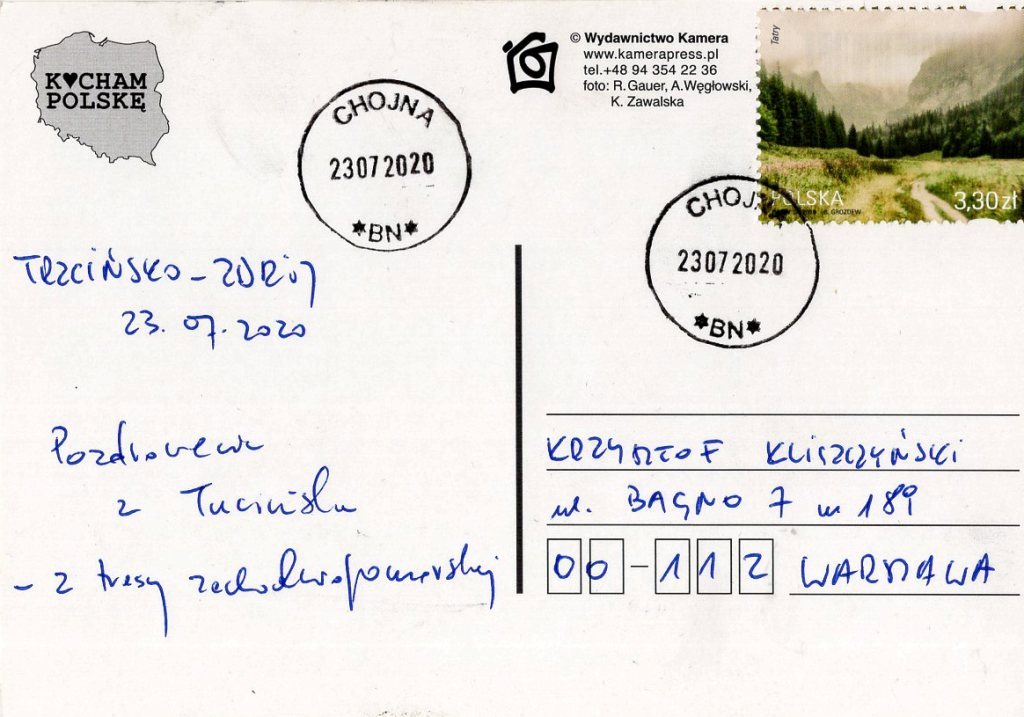 K♥CHAM
POLSKĘ
© Wydawnictwo Kamera
www.kamerapress.pl
tel.+48 94 354 22 36
foto: R.Gauer, A.Węgłowski,
K. Zawalska
Tatry
POLSKA
3,30 zł
CHOJNA
23072020
*BN*
CHOJNA
23072020
*BN*
TRZCIŃSKO-ZDRÓJ
23.07.2020
Pozdrowienia
z Trzcińska
- z trasy zachodniopomorskiej
KRZYSZTOF KLISZCZYŃSKI
ul. BAGNO 7 m
00-112 WARSZAWA